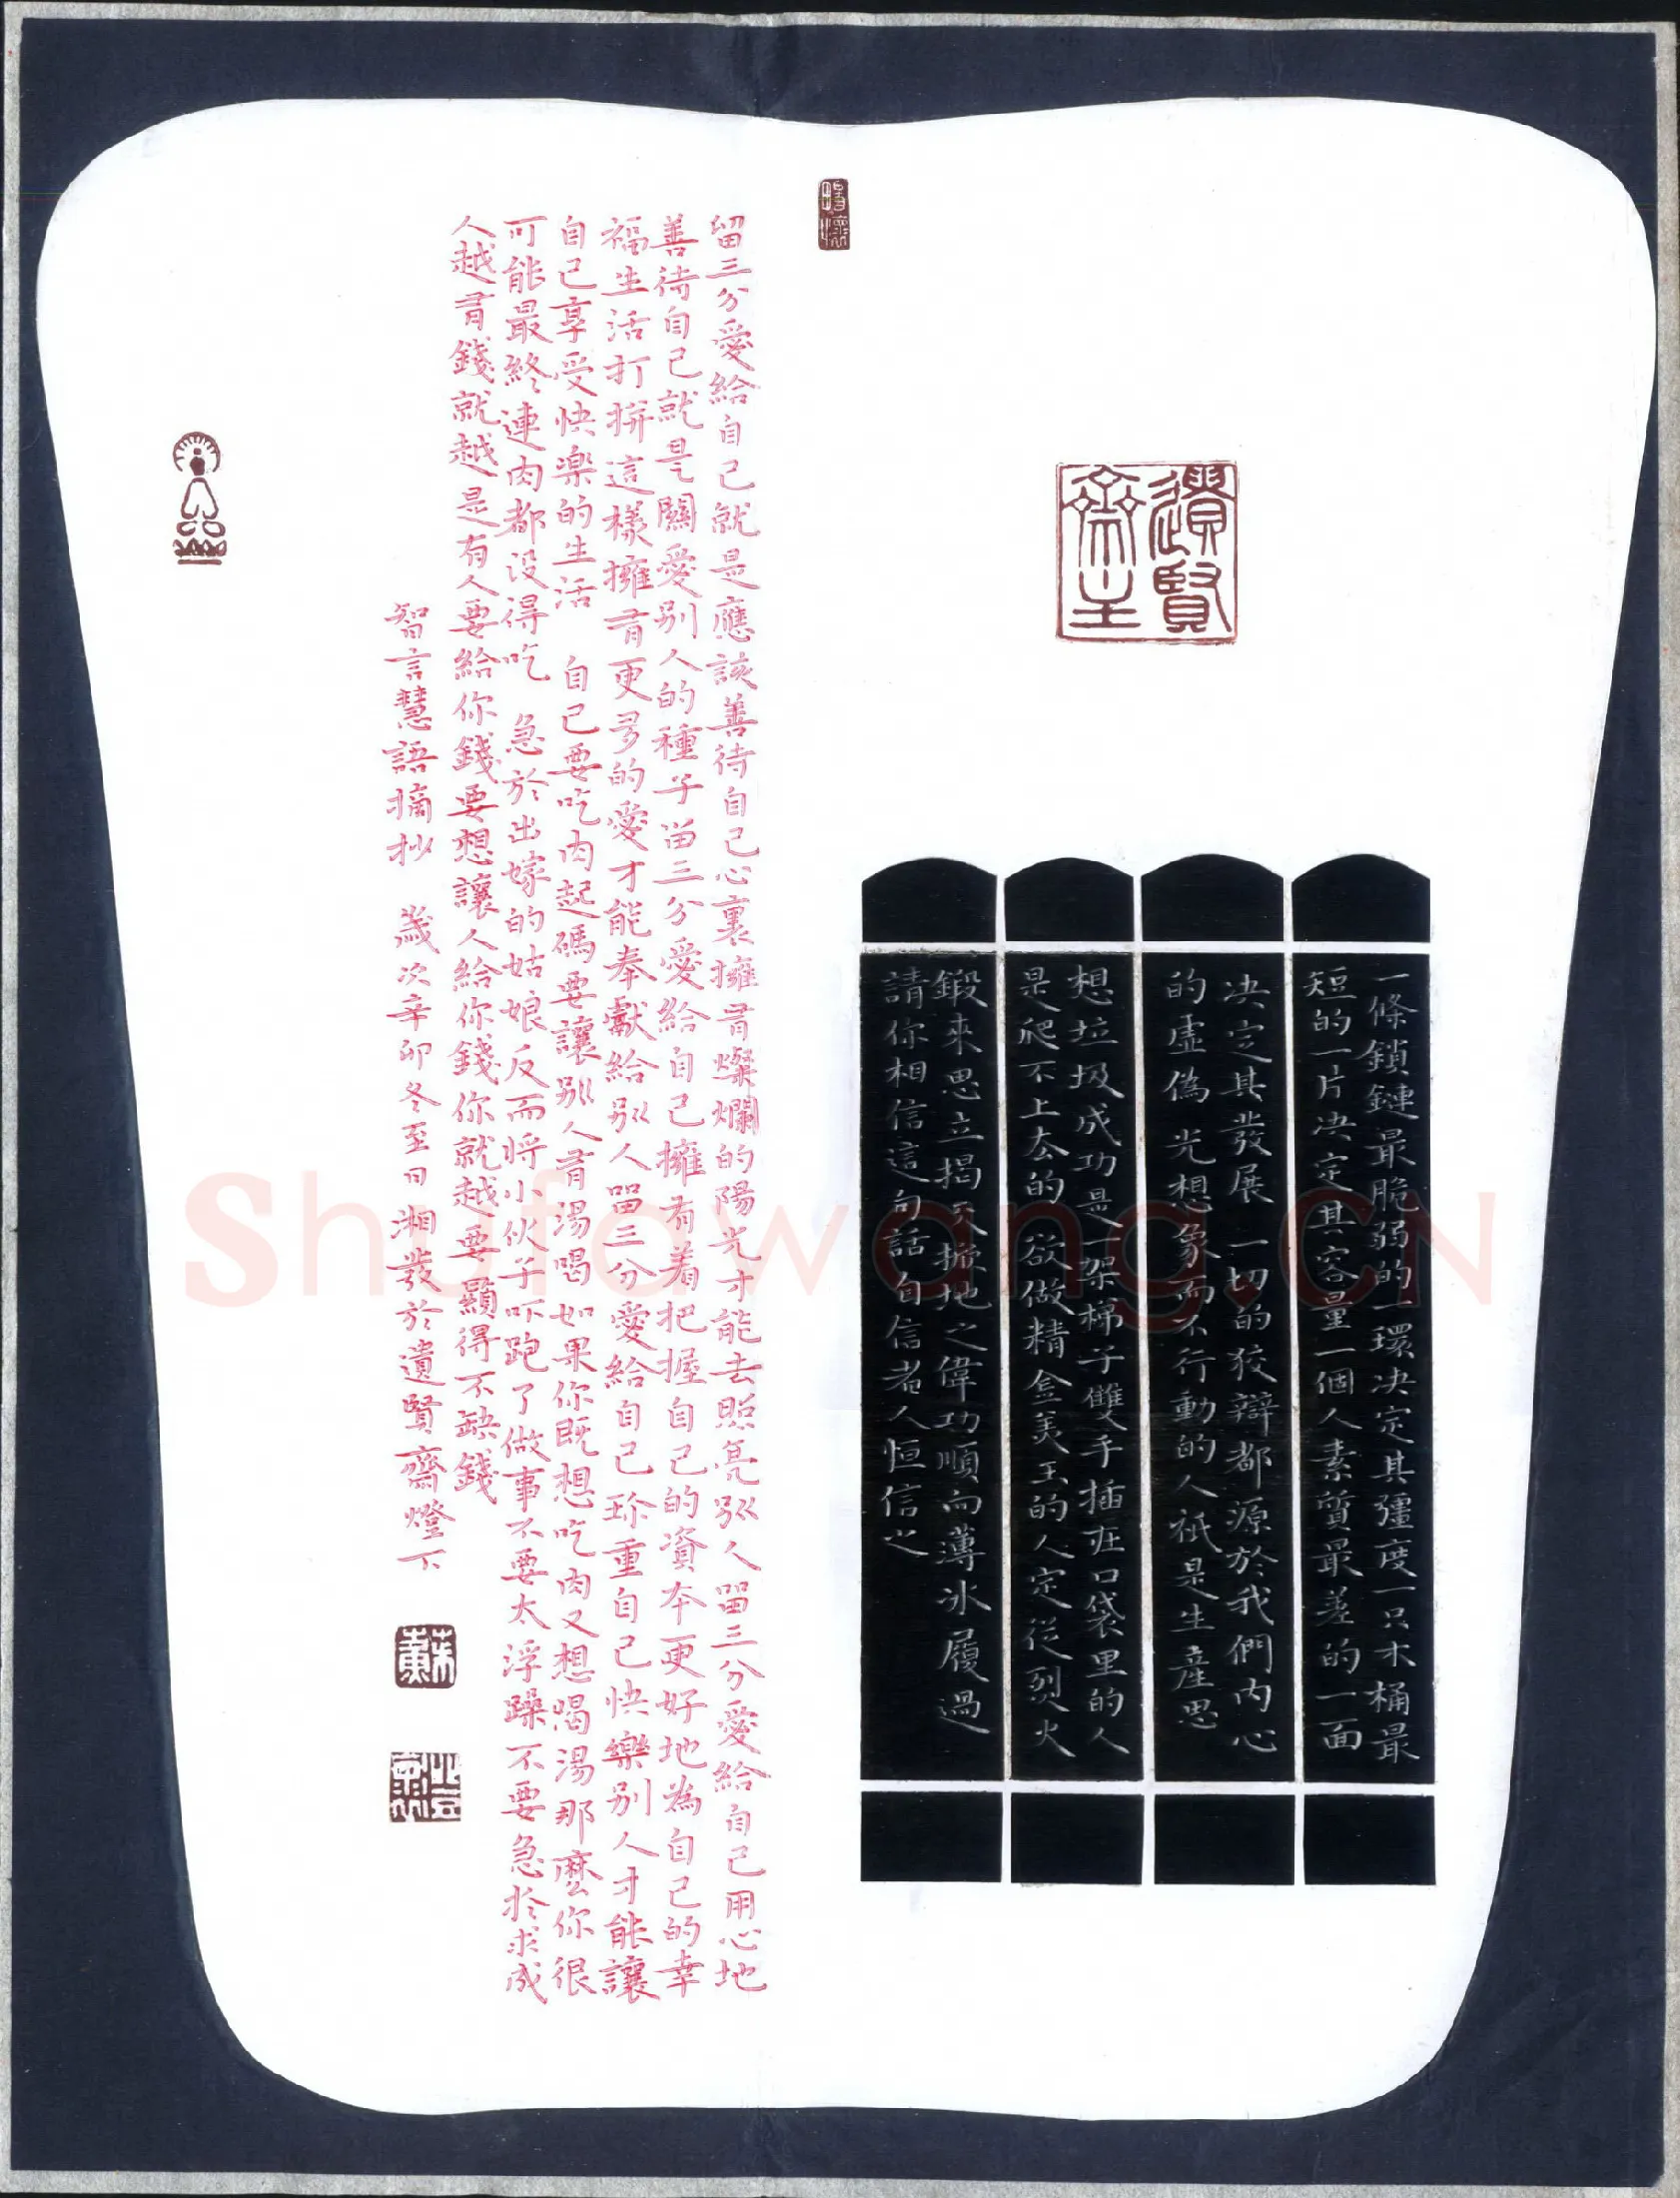 遺賢
齋主
一條鎖鏈最脆弱的一環決定其彊度一只木桶最
短的一片决定其容量一個人素質最差的一面
决定其發展一切的狡辯都源於我們内心
的虛偽光想象而不行動的人祇是生産思
想垃圾成功是一架梯子雙手插在口袋里的人
是爬不上去的欲做精金美玉的人定從烈火
鍛來思立揭天掀地之偉功順向薄冰履過
請你相信這句話自信者人恒信之
留三分愛給自己就是應該善待自己心裏擁有燦爛的陽光才能去照亮別人留三分愛給自己用心地
善待自己就是關愛别人的種子留三分愛給自己擁有着把握自己的資本更好地為自己的幸
福生活打拼這樣擁有更多的愛才能奉獻給別人留三分愛給自己珍重自己快樂别人才能讓
自己享受快樂的生活 自己要吃肉起碼要讓別人有湯喝如果你既想吃肉又想喝湯那麼你很
可能最終連肉都没得吃 急於出嫁的姑娘反而將小伙子吓跑了做事不要太浮躁不要急於求成
人越有錢就越是有人要給你錢要想讓人給你錢你就越要顯得不缺錢
智言慧語摘抄 歲次辛卯冬至日湘發於遺賢齋燈下
Shufawang.CN